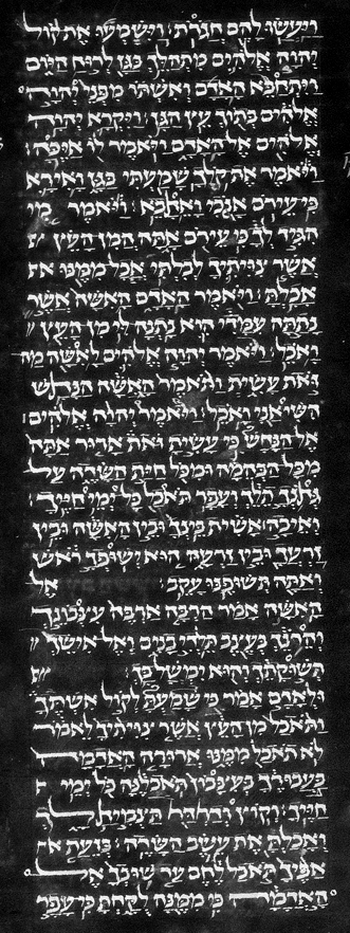 ויעשו להם חגרת: וישמעו את קול
יהוה אלהים מתהלך בגן לרוח היום
ויתחבא האדם ואשתו מפני יהוה
אלהים בתוך עץ הגן: ויקרא יהוה
אלהים אל האדם ויאמר לו איכה:
ויאמר את קלך שמעתי בגן ואירא
כי עירם אנכי ואחבא: ויאמר מי
הגיד לך כי עירם אתה המן העץ
אשר צויתיך לבלתי אכל ממנו
אכלת: ויאמר האדם האשה אשר
נתתה עמדי הוא נתנה לי מן העץ
ואכל: ויאמר יהוה אלהים לאשה מה
זאת עשית ותאמר האשה הנחש
השיאני ואכל: ויאמר יהוה אלהים:
אל הנחש כי עשית זאת ארור אתה
מכל הבהמה ומכל חית השדה על
גחנך תלך ועפר תאכל כל ימי חייך:
ואיבה אשית בינך ובין האשה ובין
זרעך ובין זרעה הוא ישופך ראש
ואתה תשופנו עקב: אל
האשה אמר הרבה ארבה עצבונך
והרנך בעצב תלדי בנים ואל אישך
תשוקתך והוא ימשל בך:
ולאדם אמר כי שמעת לקול אשתך
ותאכל מן העץ אשר צויתיך לאמר
לא תאכל ממנו ארורה האדמה
בעבורך בעצבון תאכלנה כל ימי
חייך: וקוץ ודרדר תצמיח לך
ואכלת את עשב השדה: בזעת
אפיך תאכל לחם עד שובך אל
האדמה כי ממנה לקחת כי עפר